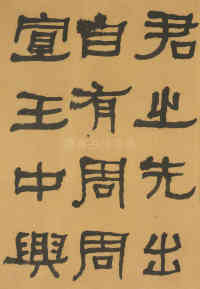 君之先出
自有周周
宣王中興